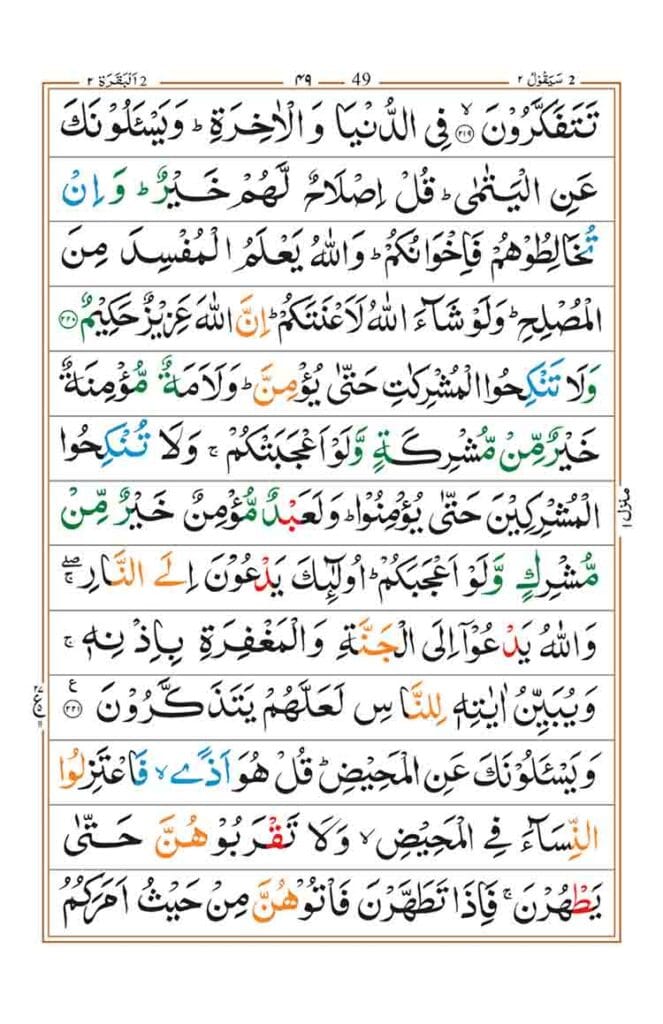 2 سَيَقُوْلُ ٢ 49 ٤٩ 2 اَلْبَقَرَة ٢
تَتَفَكَّرُوْنَ ۙ﴿٢١٩﴾ فِي الدُّنْيَا وَ الْاٰخِرَةِ ؕ وَيَسْـَٔلُوْنَكَ
عَنِ الْيَتٰمٰى ؕ قُلْ اِصْلَاحٌ لَّهُمْ خَيْرٌ ؕ وَ اِنْ
تُخَالِطُوْهُمْ فَاِخْوَانُكُمْ ؕ وَاللّٰهُ يَعْلَمُ الْمُفْسِدَ مِنَ
الْمُصْلِحِ ؕ وَلَوْ شَآءَ اللّٰهُ لَاَعْنَتَكُمْ ؕ اِنَّ اللّٰهَ عَزِيْزٌ حَكِيْمٌ ﴿٢٢٠﴾
وَلَا تَنْكِحُوا الْمُشْرِكٰتِ حَتّٰى يُؤْمِنَّ ؕ وَلَاَمَةٌ مُّؤْمِنَةٌ
خَيْرٌ مِّنْ مُّشْرِكَةٍ وَّلَوْ اَعْجَبَتْكُمْ ۚ وَلَا تُنْكِحُوا
الْمُشْرِكِيْنَ حَتّٰى يُؤْمِنُوْا ؕ وَلَعَبْدٌ مُّؤْمِنٌ خَيْرٌ مِّنْ
مُّشْرِكٍ وَّلَوْ اَعْجَبَكُمْ ؕ اُولٰٓئِكَ يَدْعُوْنَ اِلَى النَّارِ ۖۚ
وَاللّٰهُ يَدْعُوْٓا اِلَى الْجَنَّةِ وَالْمَغْفِرَةِ بِاِذْنِهٖ ۚ
وَيُبَيِّنُ اٰيٰتِهٖ لِلنَّاسِ لَعَلَّهُمْ يَتَذَكَّرُوْنَ ﴿٢٢١﴾ ع
وَيَسْـَٔلُوْنَكَ عَنِ الْمَحِيْضِ ؕ قُلْ هُوَ اَذًى ۙ فَاعْتَزِلُوا
النِّسَآءَ فِي الْمَحِيْضِ ۙ وَلَا تَقْرَبُوْهُنَّ حَتّٰى
يَطْهُرْنَ ۚ فَاِذَا تَطَهَّرْنَ فَاْتُوْهُنَّ مِنْ حَيْثُ اَمَرَكُمُ
منزل ١